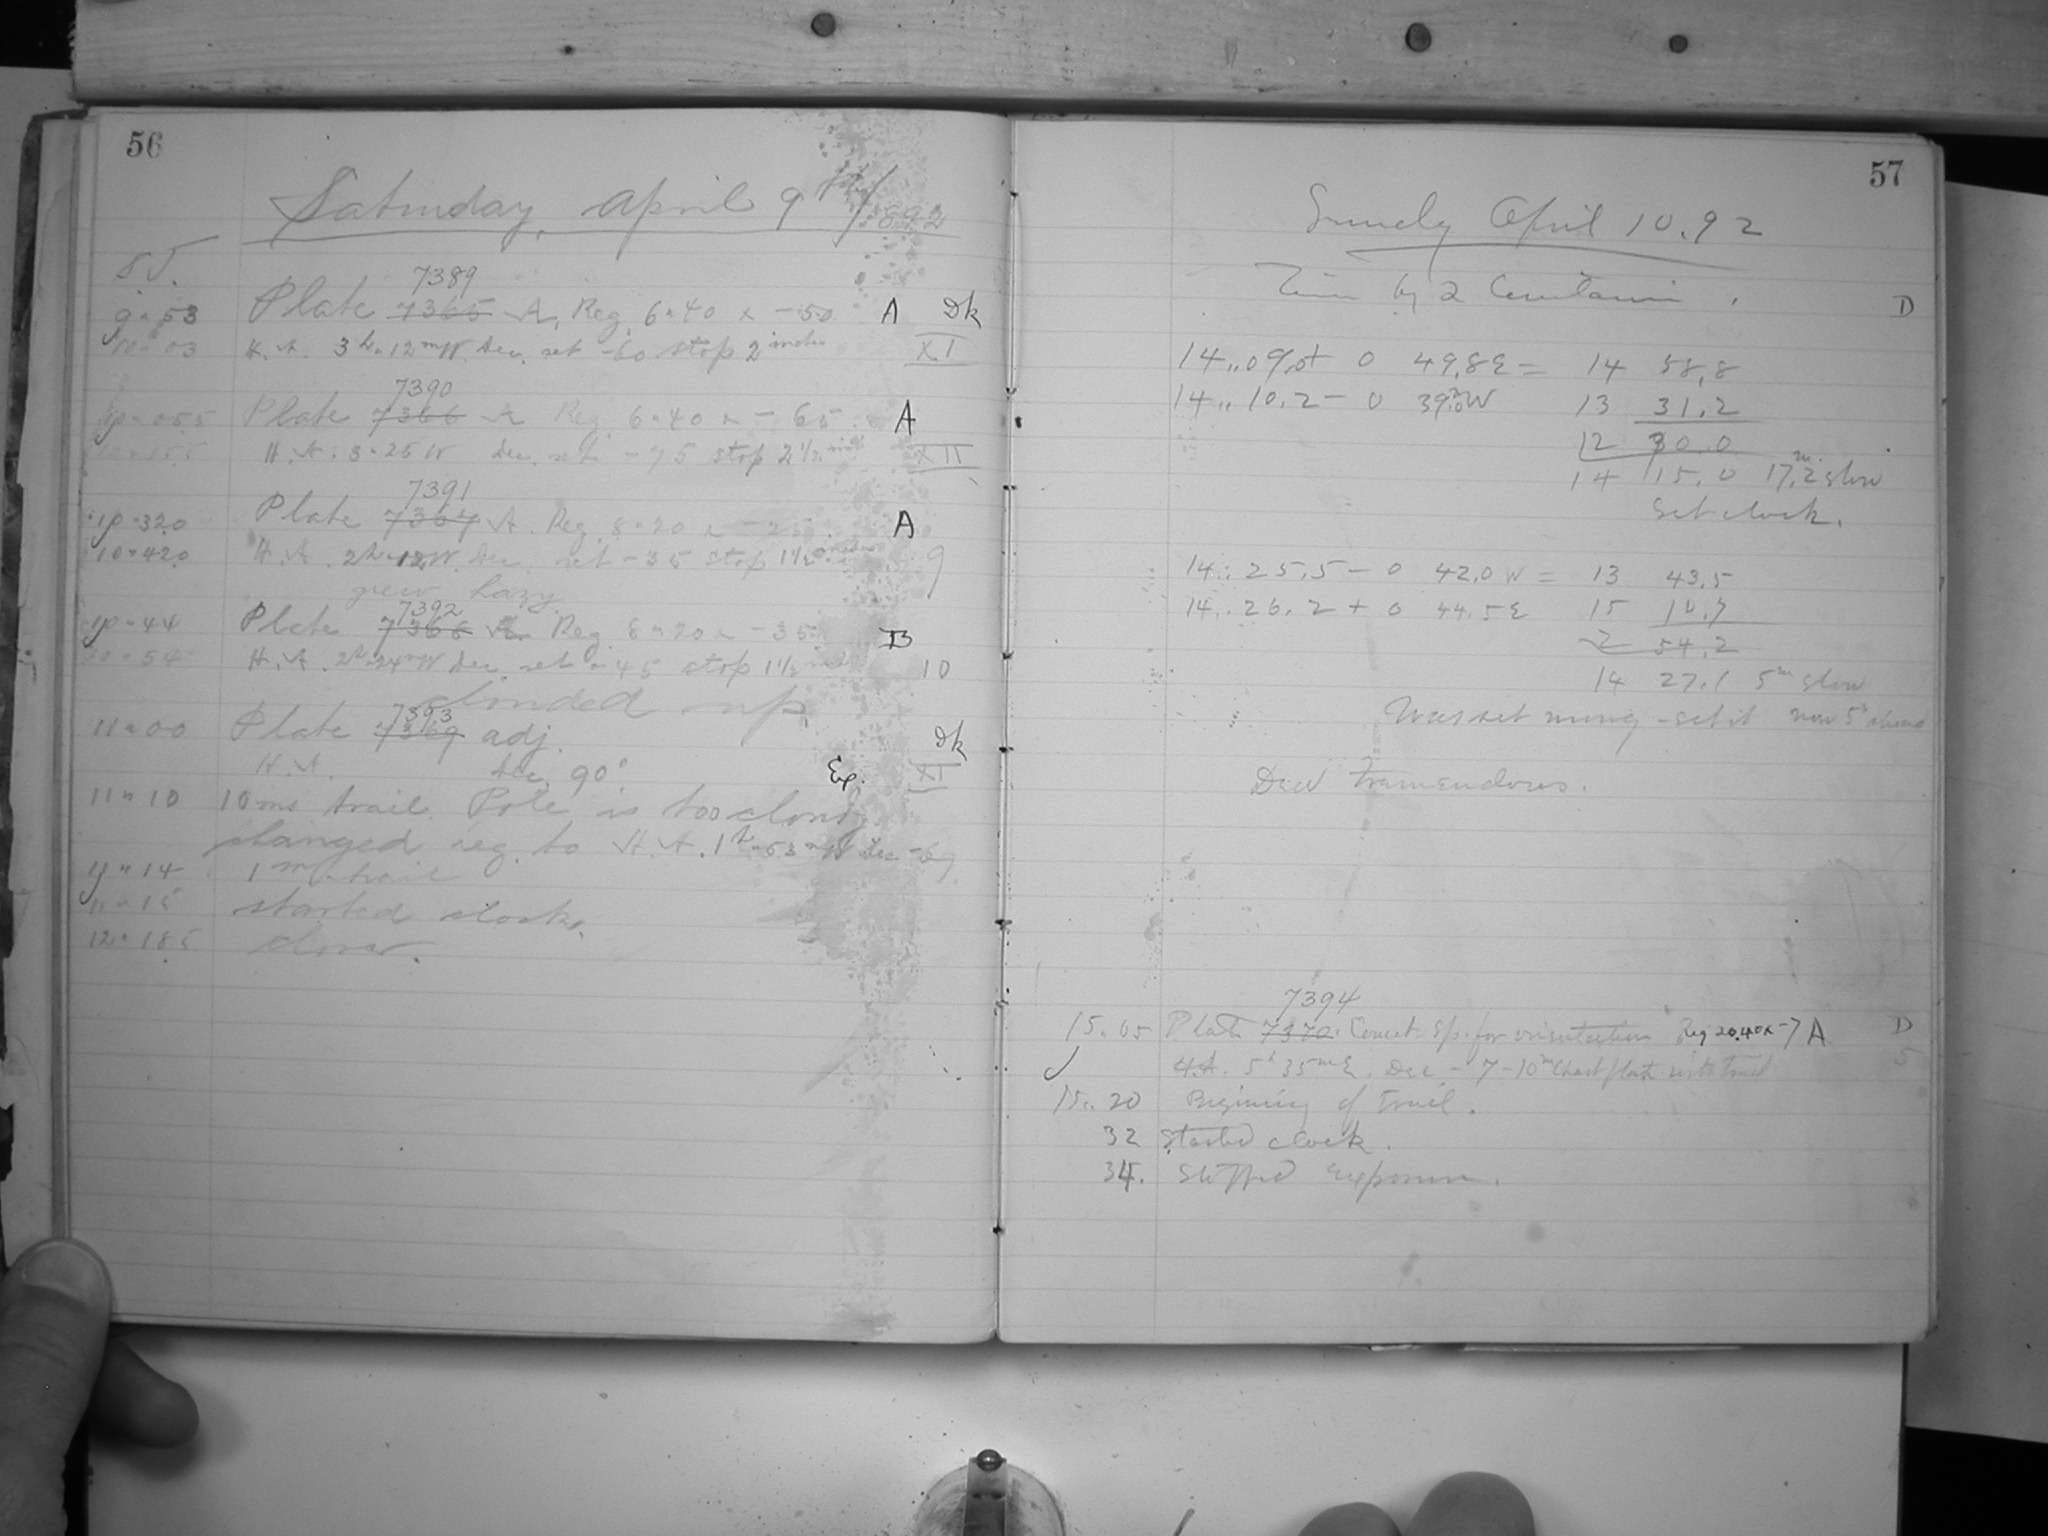 56
Saturday, April 9th/1892
S.T.
7389
9 53 Plate 7365 A, Reg. 6 40 x -50 A Dk
10 03 H.A. 3h 12m W. Dec. set -60 stop 2 inches XI
7390
10 055 Plate 7366 A Reg. 6 40 x -65 A
10 155 H.A. 3 26 W Dec. set -75 stop 2 1/2 inch XII
7391
10 320 Plate 7367 A. Reg 8 20 x -25 A
10 420 H.A. 2h 12 W. Dec. set -35 stop 1 1/2 inches 9
grew hazy
7392
10 44 Plate 7368 A Reg 8 20 x -35 B
10 54 H.A. 2h 24m W Dec. set -45 stop 1 1/2 10
clouded up
7393
11 00 Plate 7369 adj. Dk
H.A. Dec. 90° Ex. XI
11 10 10 ms trail. Pole is too cloudy
changed reg. to H.A. 1h 53m W Dec -69
11 14 1m trail
11 15 started clock.
12 185 close.
57
Sunday April 10.92
Time by 2 Centauri. D
14 09.0 + 0 49.8 E = 14 58.8
14 10.2 - 0 39.0 W 13 31.2
12 30.0
14 15.0 17.2m slow
Set clock.
14 25.5 - 0 42.0 W = 13 43.5
14 26.2 + 0 44.5 E 15 10.7
2 54.2
14 27.1 5m slow
Was set wrong - set it now 5s
Dew tremendous.
7394
15 05 Plate 7370 Comet Sp. for orientation Reg 20.40 x -7 A D
H.A. 5h 35m E. Dec -7 - 10m Chart plate with trail 5
15 20 Beginning of trail.
32 Started clock.
34. Stopped exposure.